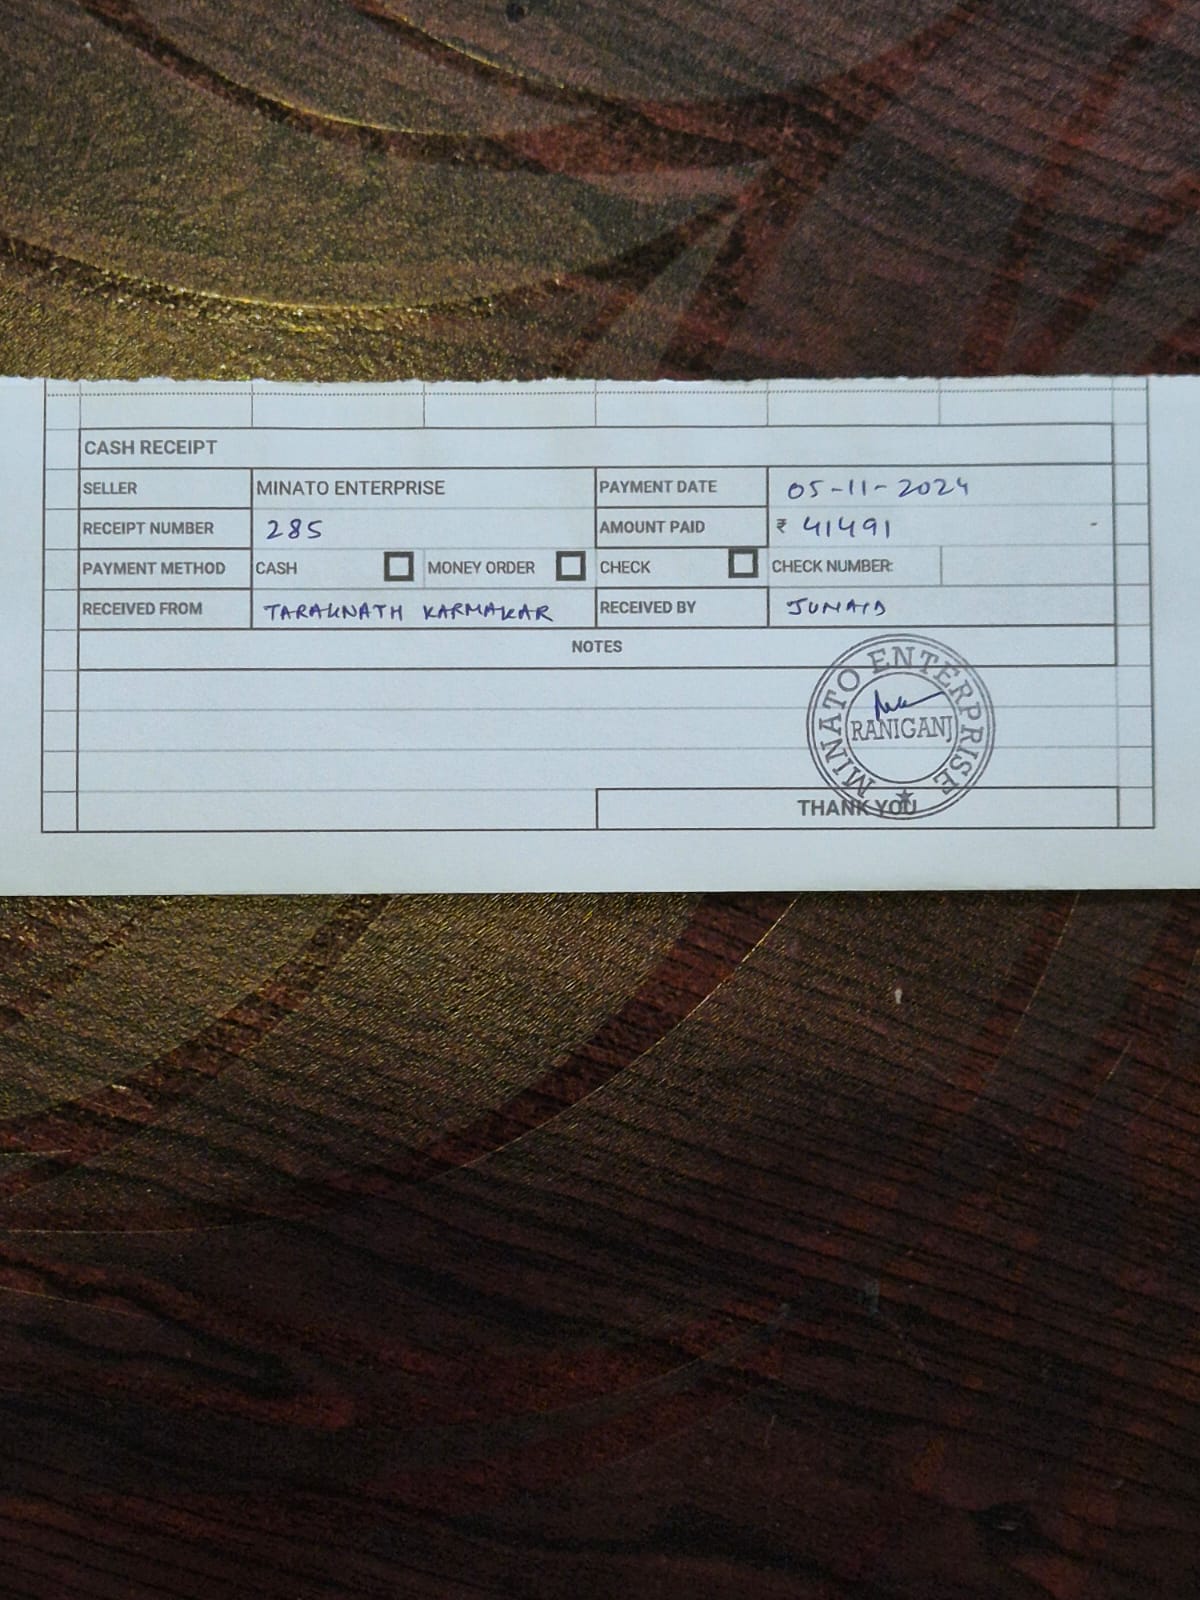 CASH RECEIPT
SELLER MINATO ENTERPRISE PAYMENT DATE 05-11-2024
RECEIPT NUMBER 285 AMOUNT PAID ₹ 41491
PAYMENT METHOD CASH MONEY ORDER CHECK CHECK NUMBER:
RECEIVED FROM TARAKNATH KARMAKAR RECEIVED BY JUNAID
NOTES
MINATO ENTERPRISE
RANIGANJ
THANK YOU